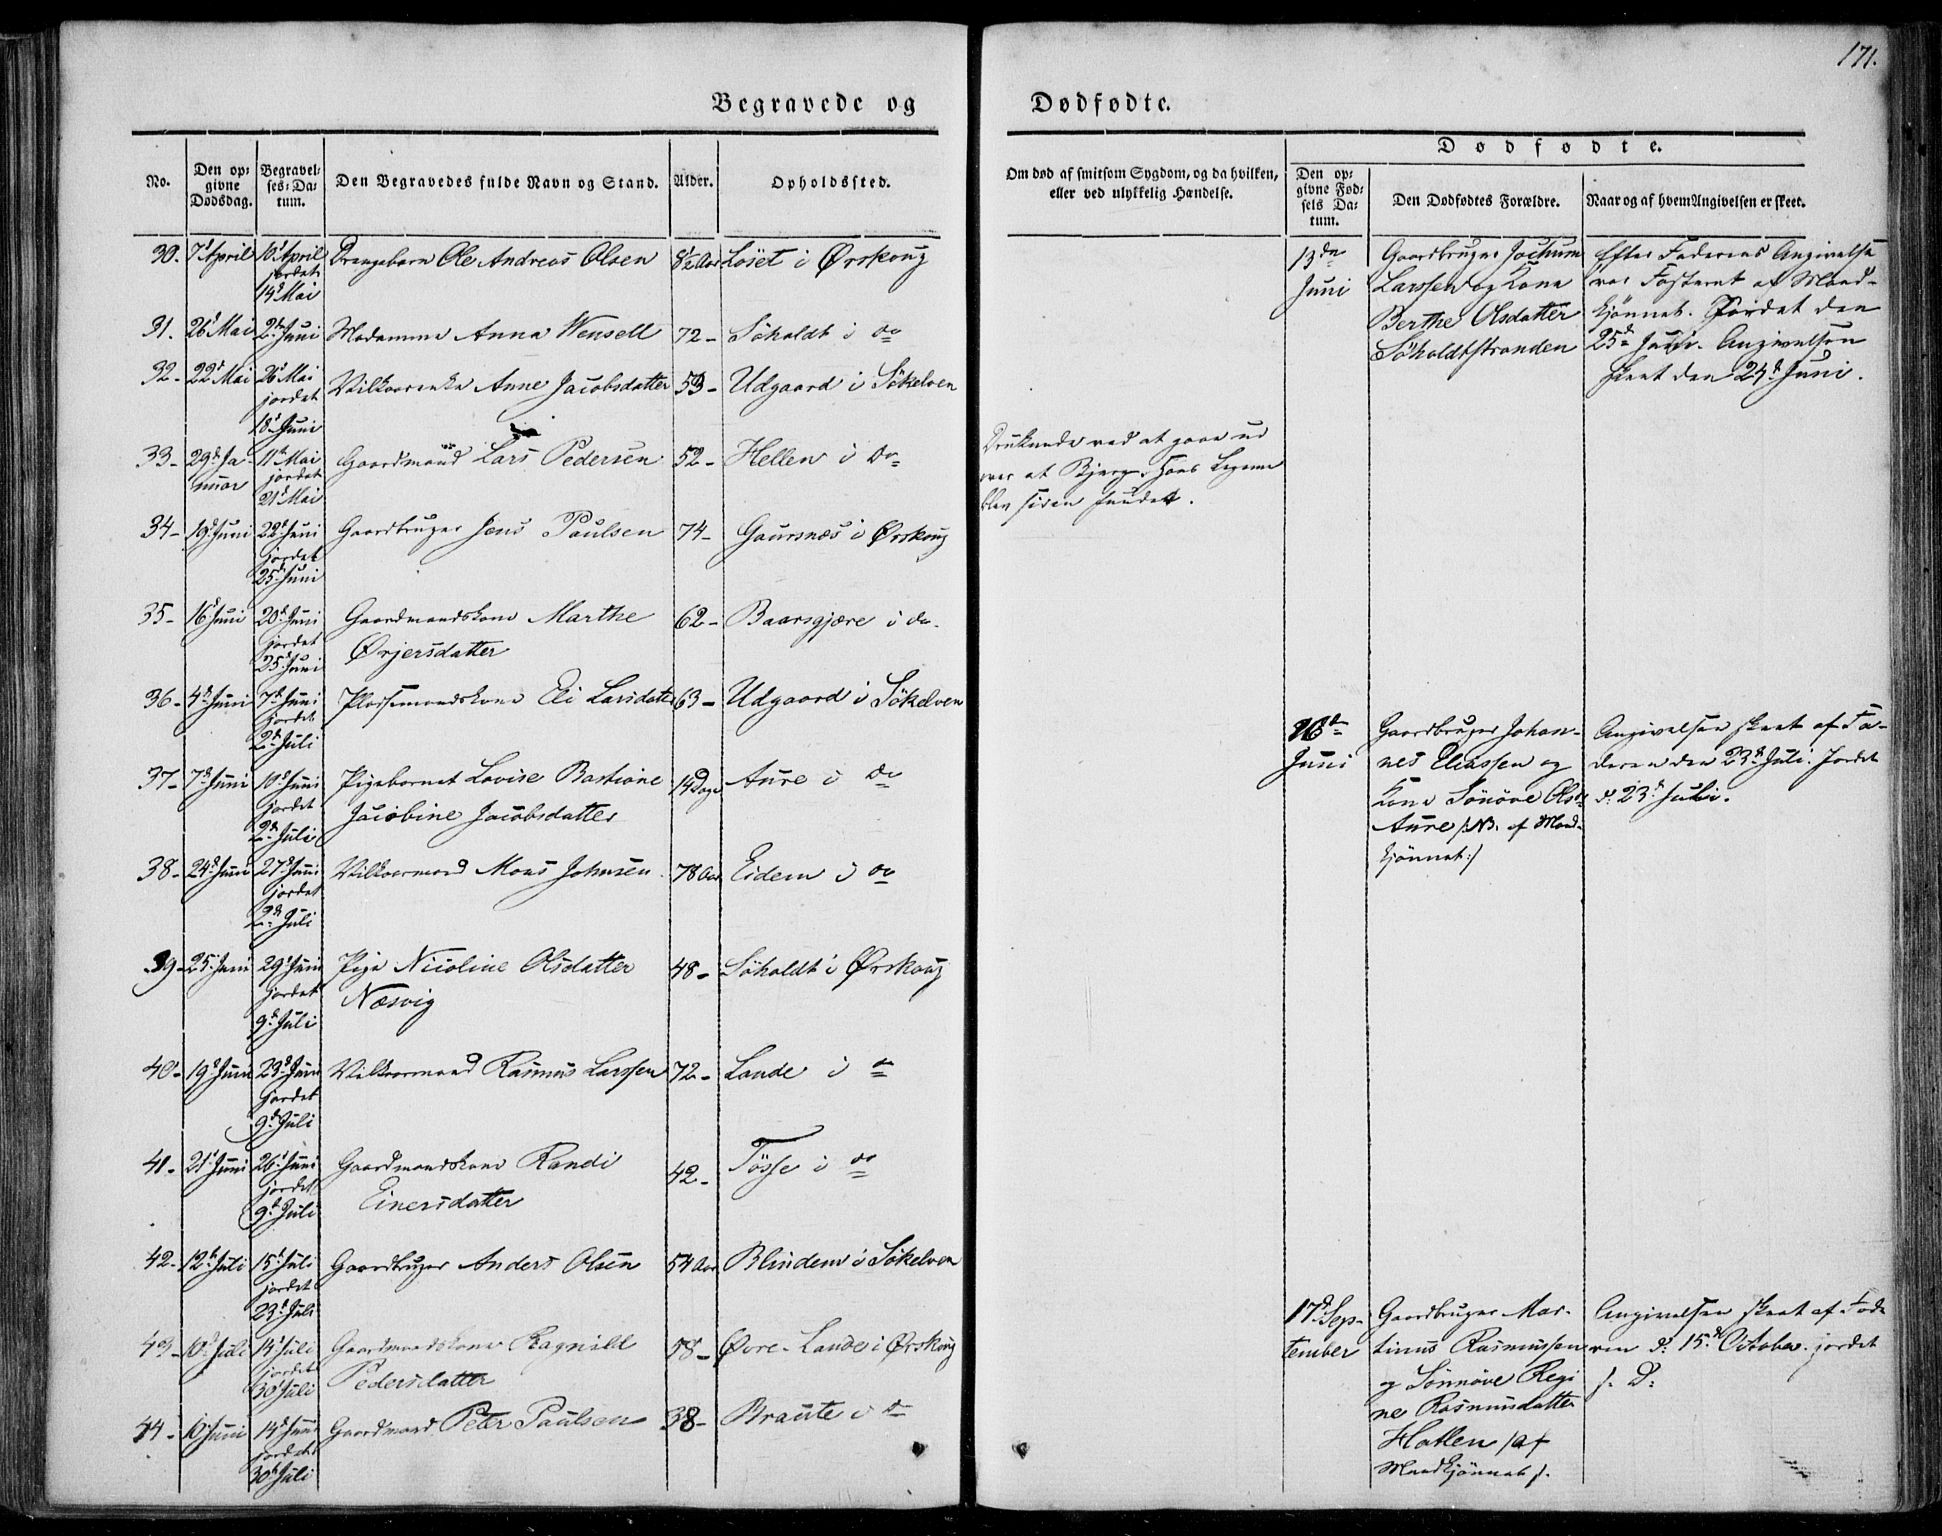 171.
Begravede og
Dødfødte.
No.
Den op-
givne
Dødsdag.
Begravel-
ses-Da-
tum.
Den Begravedes fulde Navn og Stand.
Alder.
Opholdssted.
Om død af smitsom Sygdom, og da hvilken,
eller ved ulykkelig Hændelse.
Dødfødte.
Den op-
givne Fød-
sels Da-
tum.
Den Dødfødtes Forældre.
Naar og af hvem Angivelsen er skeet.
30. 7d April 10d April Drengebarn Ole Andreas Olsen 8½ Aar Løset i Ørskoug
jordet
14d Mai
31. 26d Mai 2d Juni Madamme Anna Wensell 72 - Søholdt i do
32 - 22d Mai 26d Mai Vilkaarenke Anne Jacobsdatter 53 - Udgaard i Søkelven
jordet
18d Juni
33 - 29d Ja- 11d Mai Gaardmand Lars Pedersen 52 - Hellen i Do
nuar jordet
21d Mai
34 - 19d Juni 22d Juni Gaardbruger Jens Paulsen 74 - Gausnæs i Ørskoug
jordet
25d Juni
35 - 16d Juni 20d Juni Gaardmandskone Marthe 62 - Baarsgjære i do.
jordet Ørjersdatter
25d Juni
36 - 4d Juni 7d Juni Pladsemandskone Eli Larsdatter 63 - Udgaard i Søkelven
jordet
2d Juli
37 - 7d Juni 10d Juni Pigebarnet Lovise Bastiane 14 Dage Aure i do
jordet Jacobine Jacobsdatter
2d Juli
38 - 24d Juni 27d Juni Vilkaarmand Mons Johnsen 78 Aar Eidem i do
jordet
2d Juli
39 - 25d Juni 29d Juni Pige Nicoline Olsdatter 48 - Søholdt i Ørskoug
jordet Næsvig
9d Juli
40 - 19d Juni 23d Juni Vilkaarmand Rasmus Larssen 72 - Lande i do
jordet
9d Juli
41 - 21d Juni 26d Juni Gaardmandskone Randi 42 - Tøsse i do
jordet Einersdatter
9d Juli
42 - 12d Juli 15d Juli Gaardbruger Anders Olsen 54 Aar Blindem i Søkelven
jordet
23d Juli
43 - 10d Juli 14d Juli Gaardmandskone Ragnild 58 - Øvre-Lande i Ørskoug
jordet Pedersdatter
30d Juli
44 - 10 Juni 14d Juni Gaardmand Peter Paulsen 38 - Braute i do
jordet
30d Juli
Druknede ved at gaae ud
over et Bjerg. Hans Legeme
blev siden fundet.
13de
Juni
Gaardbruger Jochum
Larssen og Kone
Berthe Olsdatter
Søholdtstranden
Efter Faderens Angivelse
var Fosteret af Mand-
kjønnet. Jordet den
25d Juni. Angivelsen
skeet den 24d Juni.
16de
Juni
Gaardbruger Johan-
nes Eliassen og
Kone Sønøve Olsd:
Aure /:NB. af Mand-
kjønnet:/
Angivelsen skeet af Fa-
deren den 23d Juli. Jordet
d. 23d Juli.
17d Sep-
tember
Gaardbruger Mar-
tinus Rasmussen
og Sønnøve Regi
ne Rasmusdatter
Hatlen /af
Mandkjønnet/.
Angivelsen skeet af Fade
ren d. 15d October. jordet
s. D.